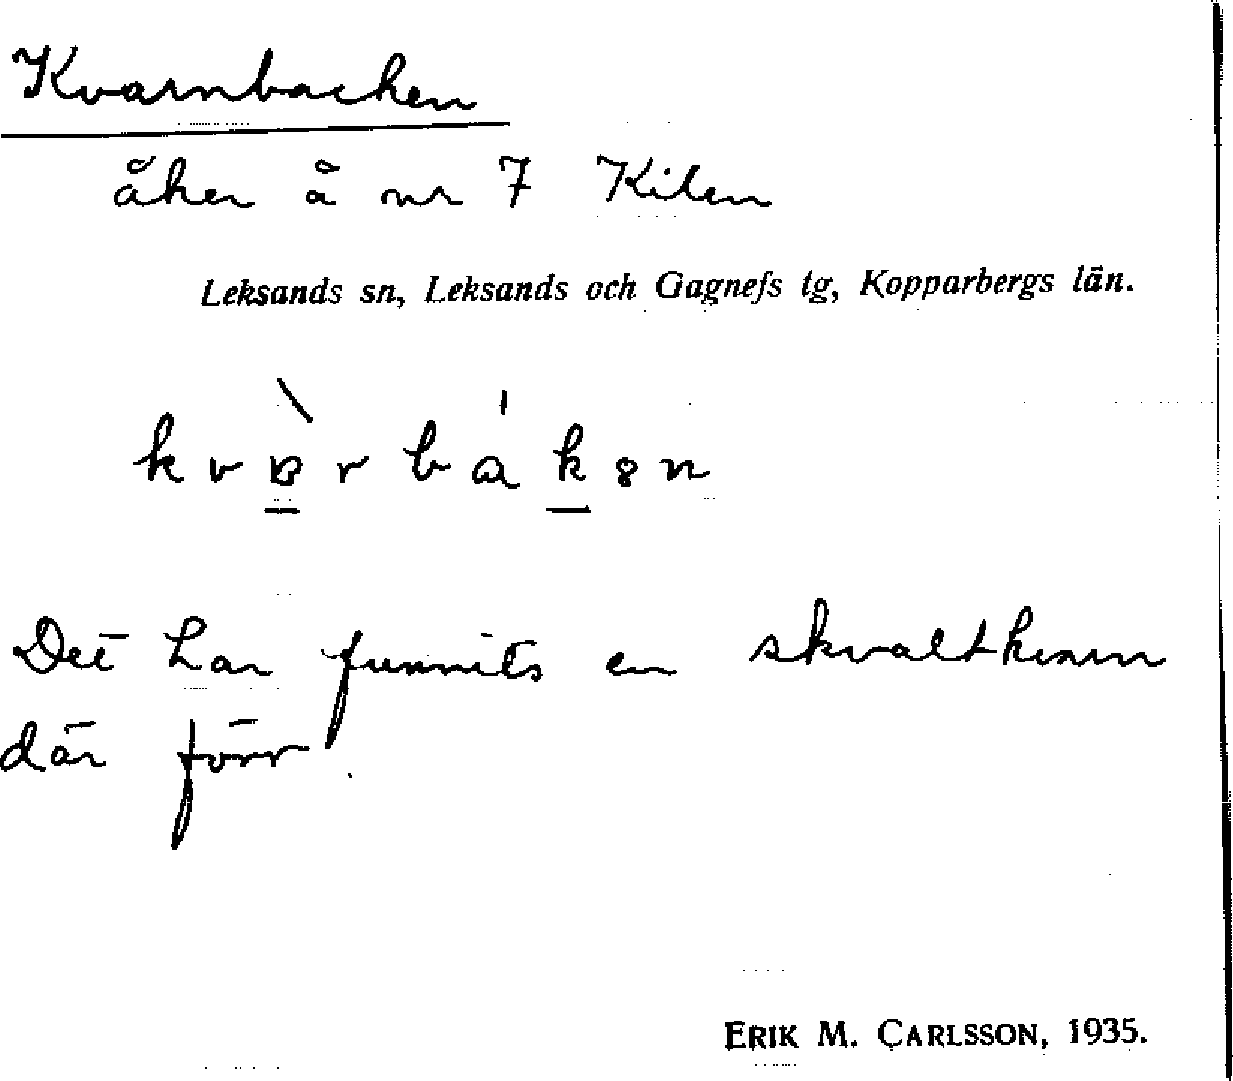 Kvarnbacken
åker å nr 7 Kilen
Leksands sn, Leksands och Gagnefs tg, Kopparbergs län.
Det har funnits en
där förr
ERIK M. CARLSSON, 1935.